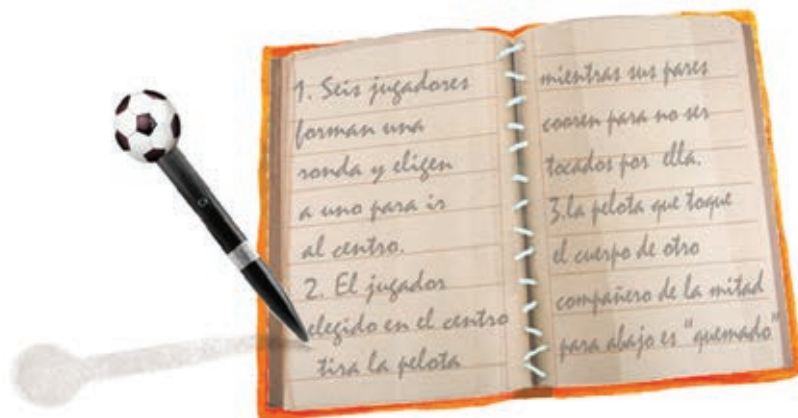 1. Seis jugadores
forman una
ronda y eligen
a uno para ir
al centro.
2. El jugador
elegido en el centro
tira la pelota
mientras sus pares
cooren para no ser
tocados por ella.
3.la pelota que toque
el cuerpo de otro
compañero de la mitad
para abajo es "quemado"